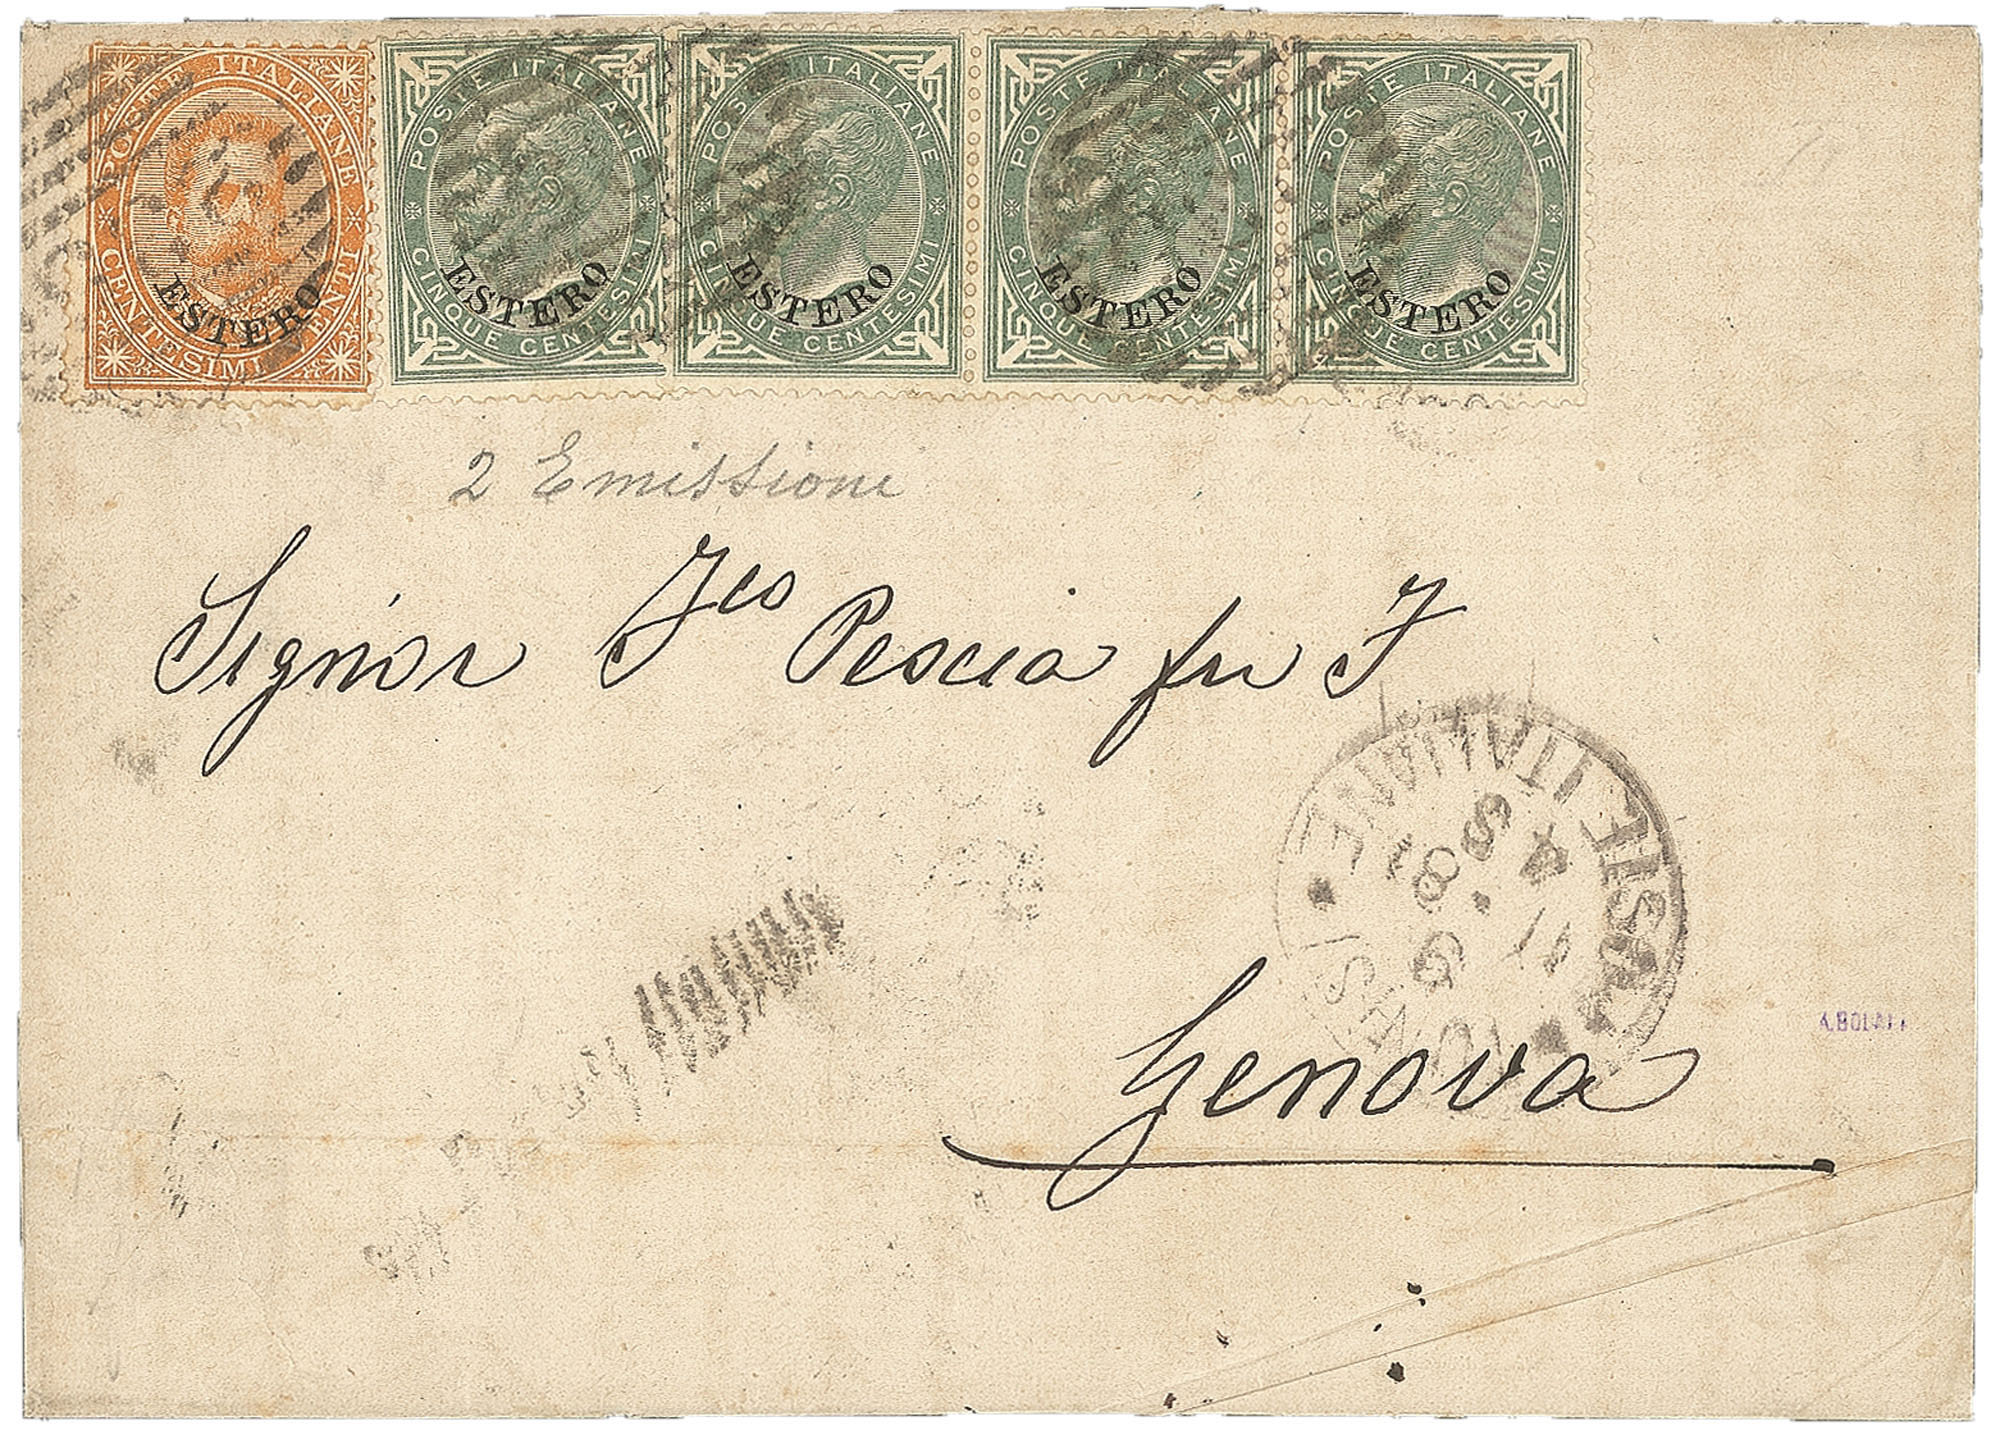 POSTE ITALIANE
CENTESIMI VENTI
ESTERO
POSTE ITALIANE
CINQUE CENTESIMI
ESTERO
POSTE ITALIANE
CINQUE CENTESIMI
ESTERO
POSTE ITALIANE
CINQUE CENTESIMI
ESTERO
POSTE ITALIANE
CINQUE CENTESIMI
ESTERO
2 Emissioni
Signor Fco Pescia fu F
POSTE ITALIANE
TUNISI
Genova